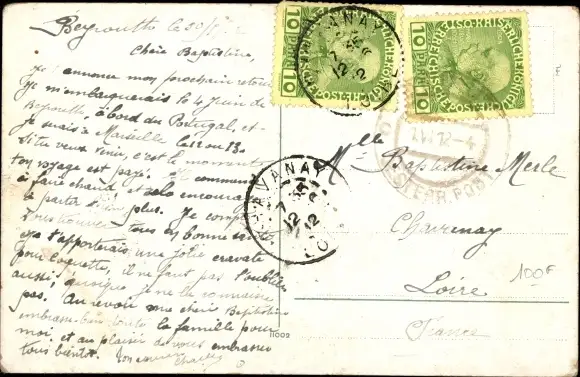 Beyrouth le 20/5/12
Chère Baptistine,
Je t'annonce mon prochain retour
Je m'embarquerais le 4 juin de
Beyrouth, à bord du Portugal, et
je serais à Marseille le 12 ou 13.
Si tu veux venir, c'est le moment
ton voyage est payé. commence
à faire chaud et cela encourage
à partir plus. Je compte
vous trouver tous en bonne santé
et t'apporterais une jolie cravate
pour Coquette, il ne faut pas l'oublier
aussi, quoique je ne la connaisse
pas. Au revoir ma chère Baptistine
embrasse bien toute la famille pour
moi, et au plaisir de vous embrasser
tous bientôt. Ton cousin
Charles
11009
10 PARA 10
KAIS. KÖNIGL. ÖSTERREICHISCHE POST
10 PARA 10
KAIS. KÖNIGL. ÖSTERREICHISCHE POST
CHAVANAY
12
LOIRE
CHAVANAY
7
12
12
LOIRE
12-4
ÖSTERR. POST
Mlle
Baptistine Merle
Chavanay
Loire
France
100F